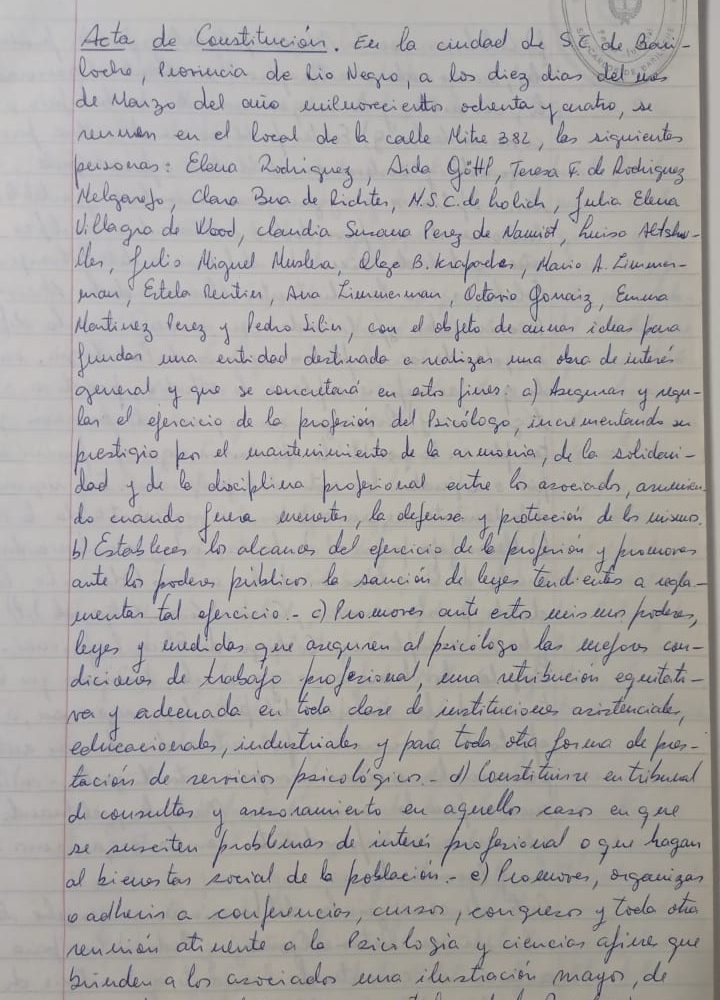 Acta de Constitución. En la ciudad de S.C. de Bari-
loche, Provincia de Rio Negro, a los diez dias del mes
de Marzo del año milnovecientos ochenta y cuatro, se
reunen en el local de la calle Mitre 382, las siguientes
personas: Elena Rodriguez, Aida Göttl, Teresa F. de Rodriguez
Melgarejo, Clara Bra de Richter, N.S.C. de Lolich, Julia Elena
Villagra de Wood, Claudia Susana Perez de Namiot, Luisa Altshu-
ller, Julio Miguel Muslera, Olga B. Krapodes, Mario A. Zimmer-
man, Estela Rentier, Ana Zimmerman, Octavio Gomaiz, Emma
Martinez Perez y Pedro Silin, con el objeto de aunar ideas para
fundar una entidad destinada a realizar una obra de interés
general y que se concretará en estos fines: a) Asegurar y regu-
lar el ejercicio de la profesión del Psicólogo, incrementando su
prestigio por el mantenimiento de la armonia, de la solidari-
dad y de la disciplina profesional entre los asociados, asumien-
do cuando fuera menester, la defensa y protección de los mismos.
b) Establecer los alcances del ejercicio de la profesión y promover
ante los poderes públicos la sanción de leyes tendientes a regla-
mentar tal ejercicio.- c) Promover ante estos mismos poderes,
leyes y medidas que aseguren al psicólogo las mejores con-
diciones de trabajo profesional, una retribución equitati-
va y adecuada en toda clase de instituciones asistenciales,
educacionales, industriales y para toda otra forma de pres-
tación de servicios psicológicos.- d) Constituirse en tribunal
de consultas y asesoramiento en aquellos casos en que
se susciten problemas de interés profesional o que hagan
al bienestar social de la población.- e) Promover, organizar
o adherir a conferencias, cursos, congresos y toda otra
reunión atinente a la Psicologia y ciencias afines que
brinden a los asociados una ilustración mayor, de